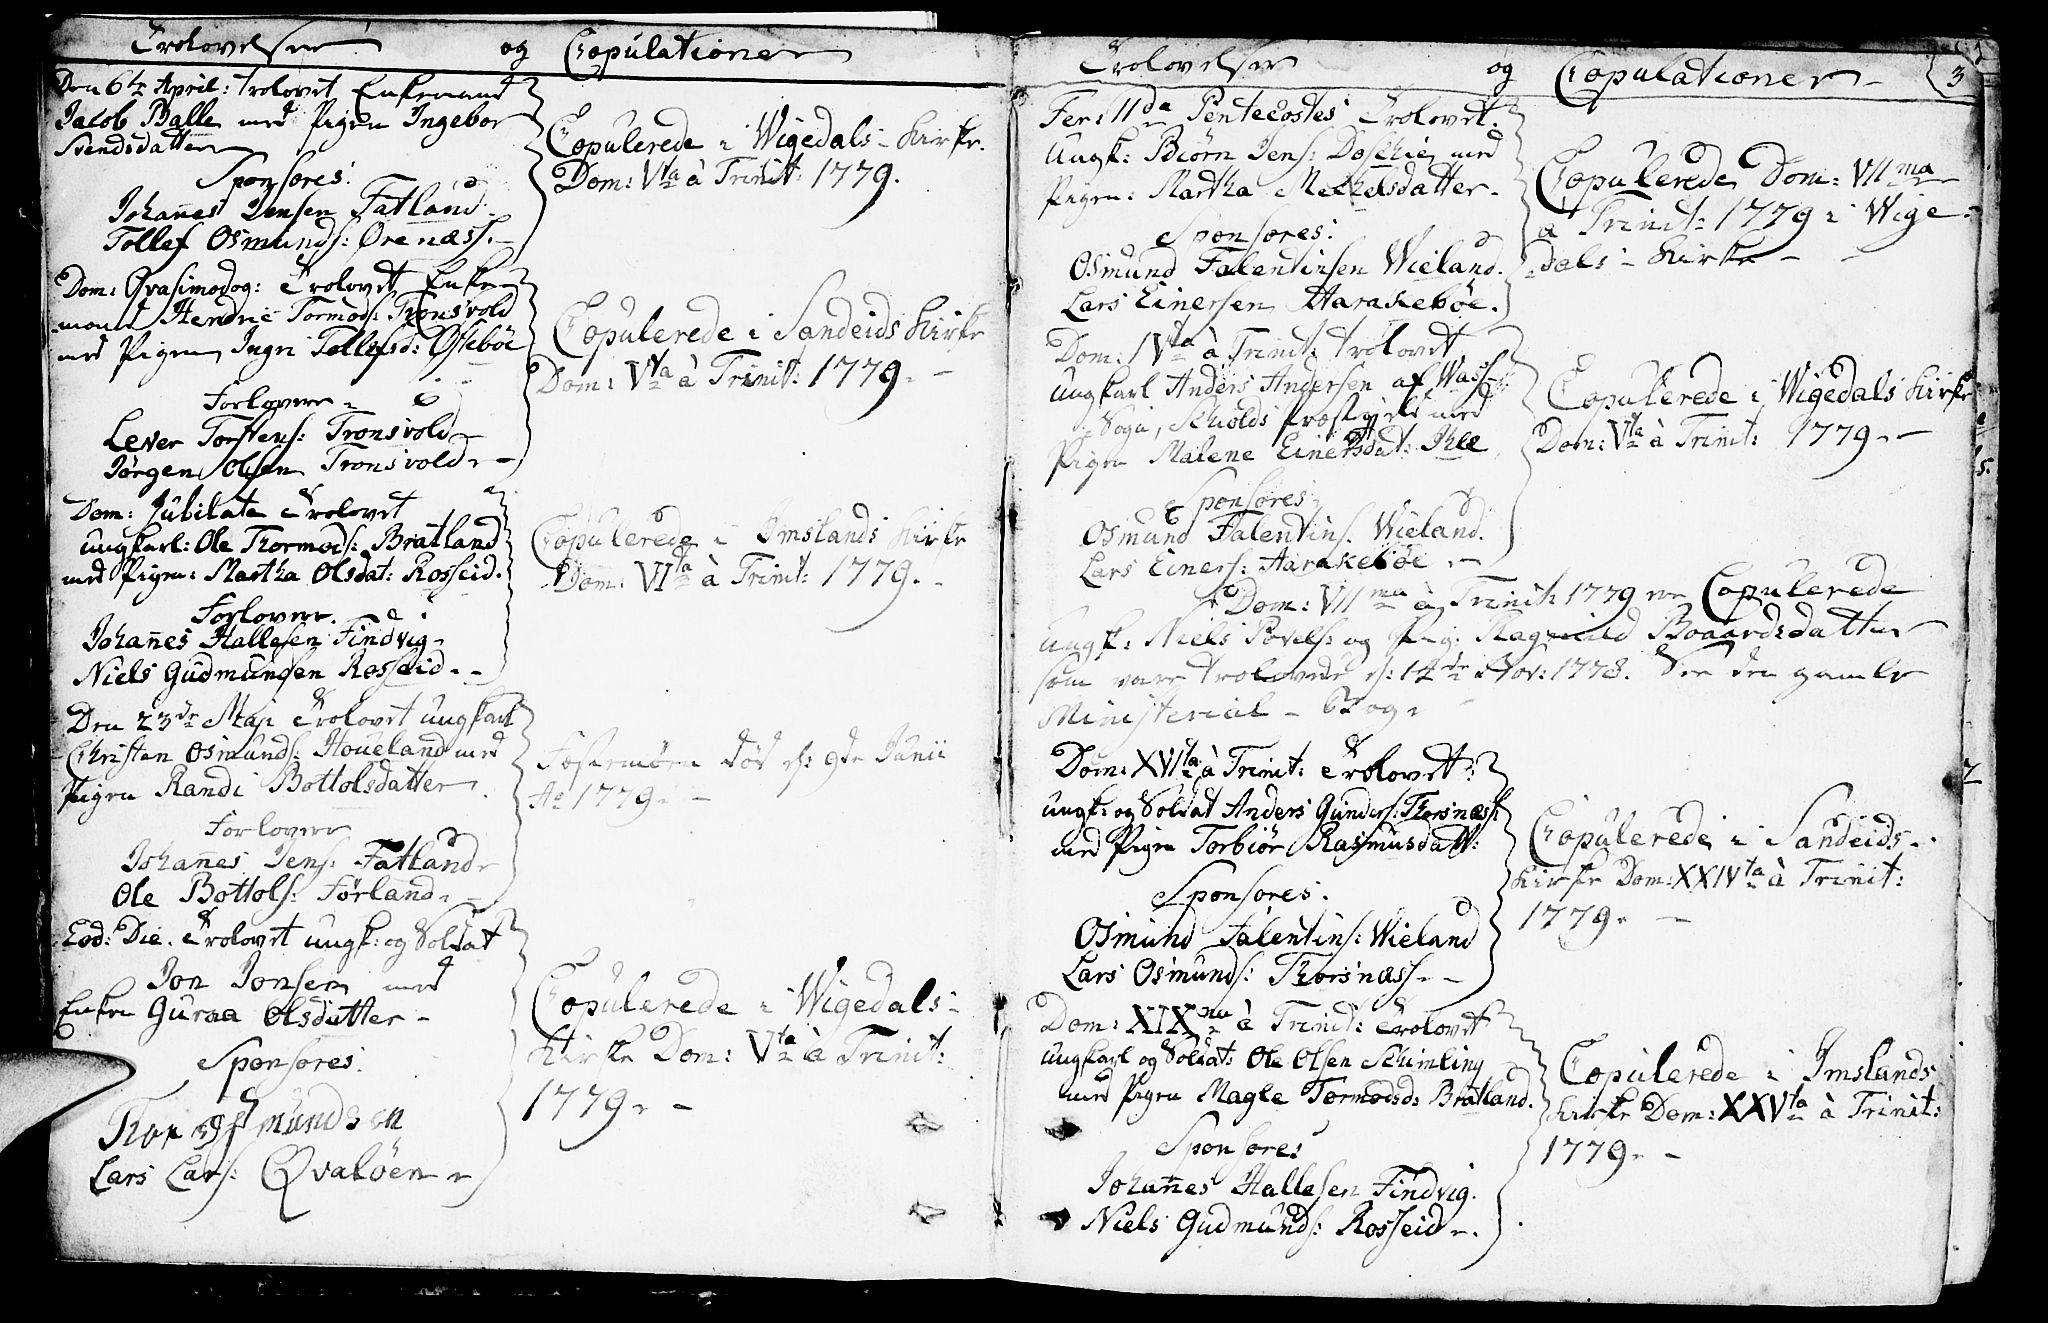 Trolovelser og Copulationer
Den 6te April: trolovet Enkemand
Jacob Balle med Pigen Ingebor
Svendsdatter
Sponsores:
Johanes Jensen Fatland
Tollef Osmunds: Ørenæss.
Copulerede i Wigedals Kirke.
Dom: Vta à Trinit: 1779.
Dom: Qvasimodog: Trolovet Enke-
mand Hendric Tormods: Tronsvold
med Pigen Ingri Tollefsd: Østeböe
Forlovere
Lever Torstens: Tronsvold
Jørgen Olsen Tronsvold
Copulerede i Sandeids Kirke
Dom: Vta à Trinit: 1779.
Dom: Jubilate Trolovet
ungkarl: Ole Thormods: Bratland
med Pigen: Martha Olsdat: Rosseid.
Forlovere
Johanes Hallesen Findvig
Niels Gudmundsen Rosseid
Copulerede i Imslands Kirke
Dom: VIta à Trinit: 1779.
Den 23de Maji Trolovet ungkarl
Christen Osmunds: Houeland med
Pigen Randi Bottolsdatter
Forlovere
Johanes Jens: Fatland
Ole Bottols: Førland
Festemøen død d: 9de Junii
Ao 1779.
Eod: Die. Trolovet ungk: og Soldat
Jon Jonsen med
Enken Guraa Olsdatter
Sponsores:
Thor Osmundsen
Lars Lars: Qvaløen
Copulerede i Wigedals
Kirke Dom: Vta à Trinit:
1779.
Trolovelser og Copulationer 3
Fer: IIda Pentecostes Trolovet.
Ungk: Biörn Jens: med
Pigen: Martha Mekelsdatter
Sponsores:
Osmund Falentinsen Wieland.
Lars Einersen Aarakeböe.
Copulerede Dom: VIIma
à Trinit: 1779 i Wige-
dals Kirke
Dom: IVta à Trinit: trolovet
ungkarl Anders Andersen af Wass
Sogn, Skiolds Præstgield med
Pigen Malene Einersdat: Ihle
Sponsores
Osmund Falentins. Wieland.
Lars Einers: Aarakeböe
Copulerede i Wigedals Kirke
Dom: Vta à Trinit: 1779.
Dom: VIIma à Trinit: 1779 ere Copulerede
Ungk: Niels Povels: og Pig: Ragnild Boaardsdatter
som vare trolovede d: 14de Nov: 1778. See den gamle
Ministerial Bog.
Dom: XVIta à Trinit: Trolovet
ungk: og Soldat Anders Gunders: Thorsnæss
med Pigen Torbiör Rasmusdatt:
Sponsores.
Osmund Falentins: Wieland
Lars Osmunds: Thorsnæss
Copulerede i Sandeids
Kirke Dom: XXIVta à Trinit:
1779.
Dom: XIXna à Trinit: Trolovet
ungkarl og Soldat: Ole Olsen Schimling
med Pigen Magle Tormodsd: Bratland.
Sponsores
Johanes Hallesen Findvig.
Niels Gudmunds: Rosseid
Copulerede i Imslands
Kirke Dom: XXVta à Trinit:
1779.